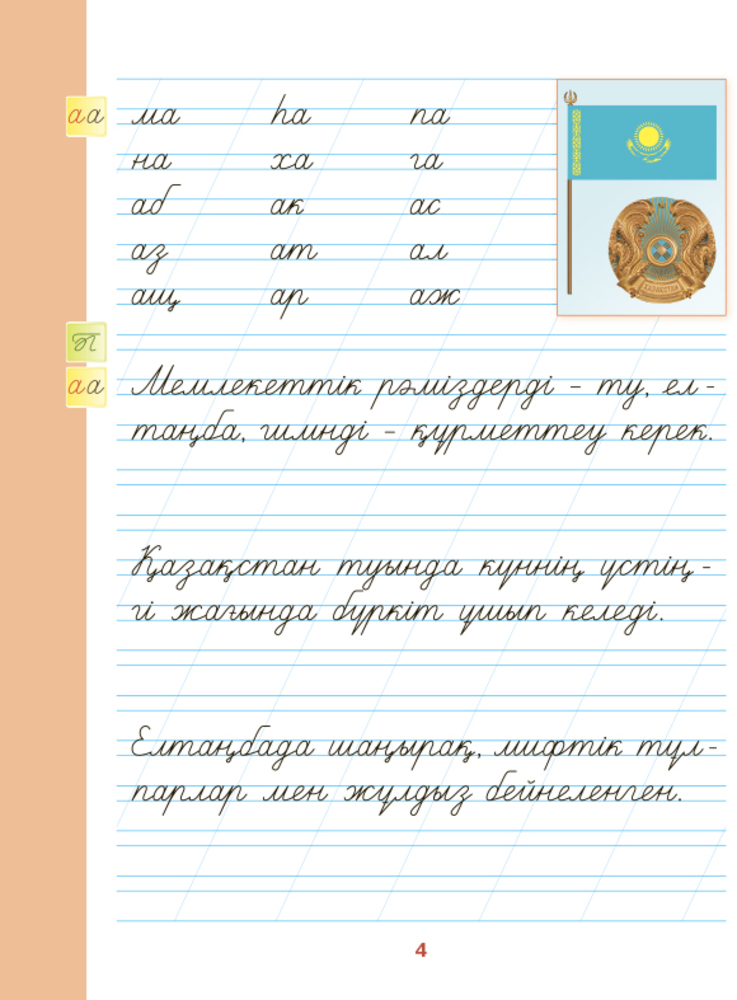 аа ма һа па
на ха га
аб ак ас
аз ат ал
ащ ар аж
П
аа Мемлекеттік рәміздерді – ту, ел-
таңба, гимнді – құрметтеу керек.
Қазақстан туында күннің үстің-
гі жағында бүркіт ұшып келеді.
Елтаңбада шаңырақ, мифтік тұл-
парлар мен жұлдыз бейнеленген.
ҚАЗАҚСТАН
4